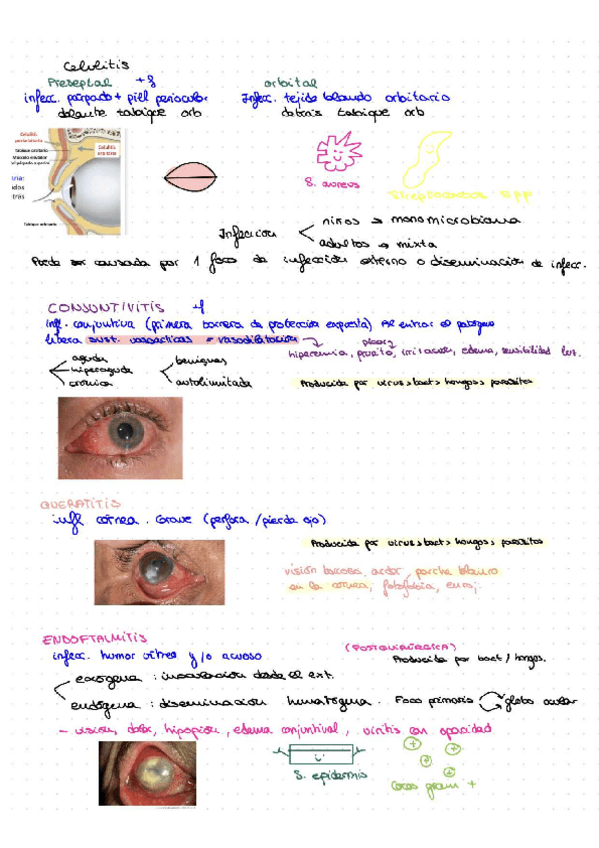 Celulitis
Preseptal +f orbital
infecc. parpado + piel periocular Infecc. tejido blando orbitario
delante tabique orb detras tabique orb
Celulitis
Tabique orbitario
Celulitis
Músculo elevador
Tabique orbitario
S. aureus Streptococcus spp
Infección
niños → monomicrobiana
adultos → mixta
Puede ser causada por 1 foco de infección externo o diseminación de infecc.
CONJUNTIVITIS +f
inf. conjuntiva (primera barrera de protección expuesta) Al entrar el patógeno
libera sust. vasoactivas → vasodilatación
picor
hiperemia, prurito, irritación, edema, sensibilidad luz.
aguda
hiperaguda
crónica
benignas
autolimitada
Producida por virus > bact > hongos > parásitos
QUERATITIS
infl córnea. Grave (perfora / pierda ojo)
Producida por virus > bact > hongos > parásitos
visión borrosa, ardor, parche blanco
en la córnea, fotofobia,
ENDOFTALMITIS
infecc. humor vítreo y/o acuoso (POSTQUIRÚRGICA)
Producida por bact / hongos.
exógena: inoculación desde el ext.
endógena: diseminación hematógena. Foco primario globo ocular
- visión, dolor, hipopion, edema conjuntival, vitritis con opacidad
S. epidermis Cocos gram +